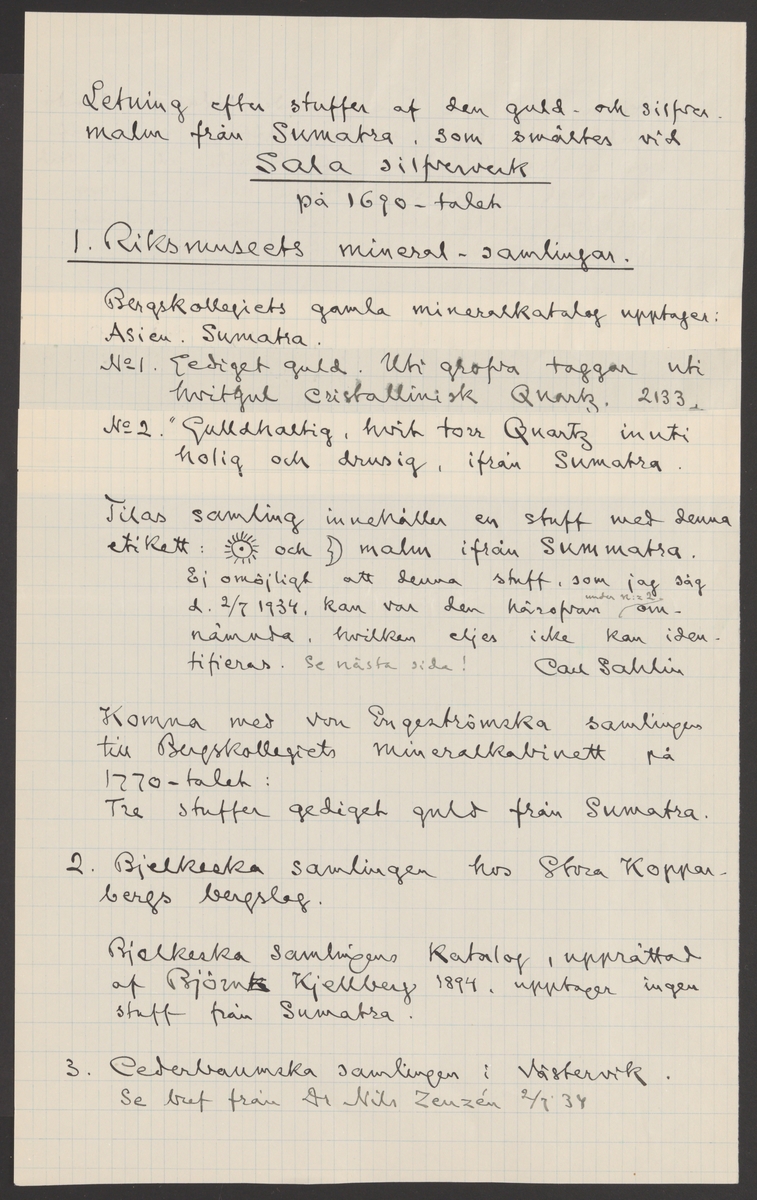 Letning efter stuffer af den guld- och silfver-
malm från Sumatra, som smältes vid
Sala silfververk
på 1690-talet
1. Riksmuseets mineral-samlingar.
Bergskollegiets gamla mineralkatalog upptager:
Asien. Sumatra.
No 1. Gediget guld. Uti grofva taggar uti
hvitgul cristallinisk Quartz. 2133.
No 2. "Gulldhaltig, hvit torr Quartz inuti
holig och drusig, ifrån Sumatra.
Tilas samling innehåller en stuff med denna
etikett: ☉ och ☽ malm ifrån Summatra.
Ej omöjligt att denna stuff, som jag såg
under N:o 2
d. 2/7 1934, kan var den härofvan om-
nämnda, hvilken eljes icke kan iden-
tifieras. Se nästa sida! Carl Sahlin
Komna med von Engeströmska samlingen
till Bergskollegiets mineralkabinett på
1770-talet:
Tre stuffer gediget guld från Sumatra.
2. Bjelkeska samlingen hos Stora Koppar-
bergs bergslag.
Bjelkeska samlingens katalog, upprättad
af Björn Kjellberg 1894, upptager ingen
stuff från Sumatra.
3. Cederbaumska samlingen i Västervik.
Se bref från Dr Nils Zenzén 2/7 34